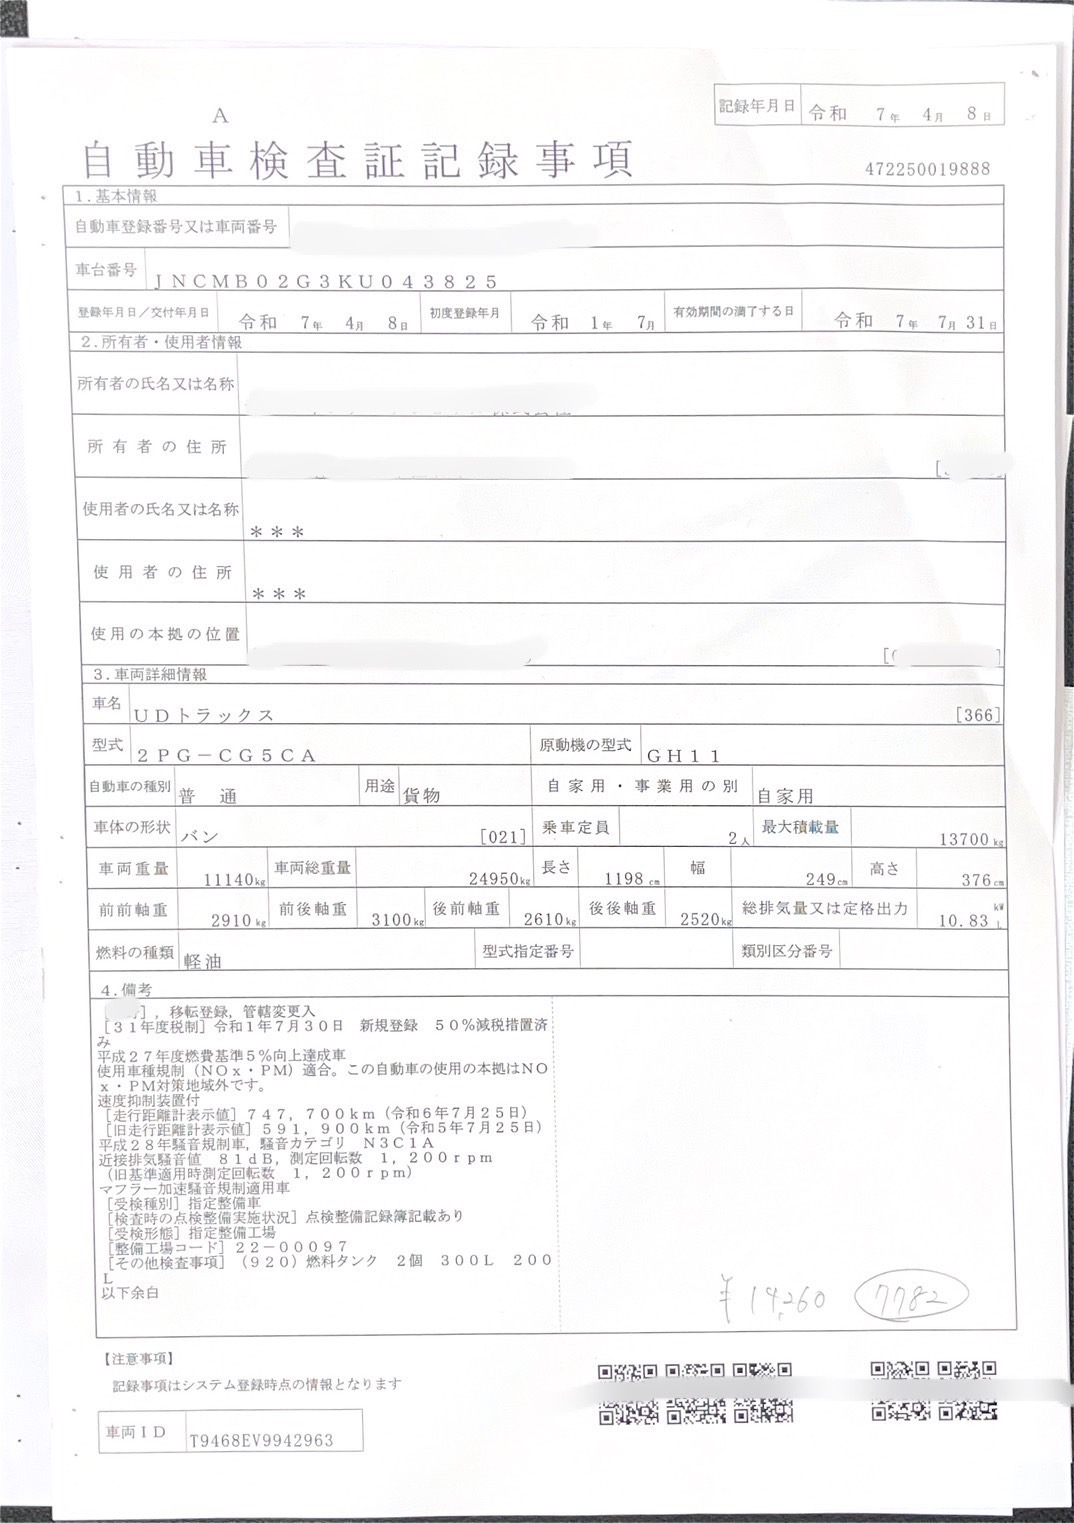 記録年月日 令和 7年 4月 8日
A
自動車検査証記録事項
472250019888
1.基本情報
自動車登録番号又は車両番号
車台番号 JNCMB02G3KU043825
登録年月日/交付年月日 令和 7年 4月 8日 初度登録年月 令和 1年 7月 有効期間の満了する日 令和 7年 7月 31日
2.所有者・使用者情報
所有者の氏名又は名称
所有者の住所
使用者の氏名又は名称 ***
使用者の住所 ***
使用の本拠の位置
3.車両詳細情報
車名 UDトラックス [366]
型式 2PG-CG5CA 原動機の型式 GH11
自動車の種別 普通 用途 貨物 自家用・事業用の別 自家用
車体の形状 バン [021] 乗車定員 2人 最大積載量 13700kg
車両重量 11140kg 車両総重量 24950kg 長さ 1198cm 幅 249cm 高さ 376cm
前前軸重 2910kg 前後軸重 3100kg 後前軸重 2610kg 後後軸重 2520kg 総排気量又は定格出力 10.83 kW L
燃料の種類 軽油 型式指定番号 類別区分番号
4.備考
],移転登録,管轄変更入
[31年度税制]令和1年7月30日 新規登録 50%減税措置済
み
平成27年度燃費基準5%向上達成車
使用車種規制(NOx・PM)適合。この自動車の使用の本拠はNO
x・PM対策地域外です。
速度抑制装置付
[走行距離計表示値]747,700km(令和6年7月25日)
[旧走行距離計表示値]591,900km(令和5年7月25日)
平成28年騒音規制車,騒音カテゴリ N3C1A
近接排気騒音値 81dB,測定回転数 1,200rpm
(旧基準適用時測定回転数 1,200rpm)
マフラー加速騒音規制適用車
[受検種別]指定整備車
[検査時の点検整備実施状況]点検整備記録簿記載あり
[受検形態]指定整備工場
[整備工場コード]22-00097
[その他検査事項](920)燃料タンク 2個 300L 200
L
以下余白
¥14,260 7782
【注意事項】
記録事項はシステム登録時点の情報となります
車両ID T9468EV9942963